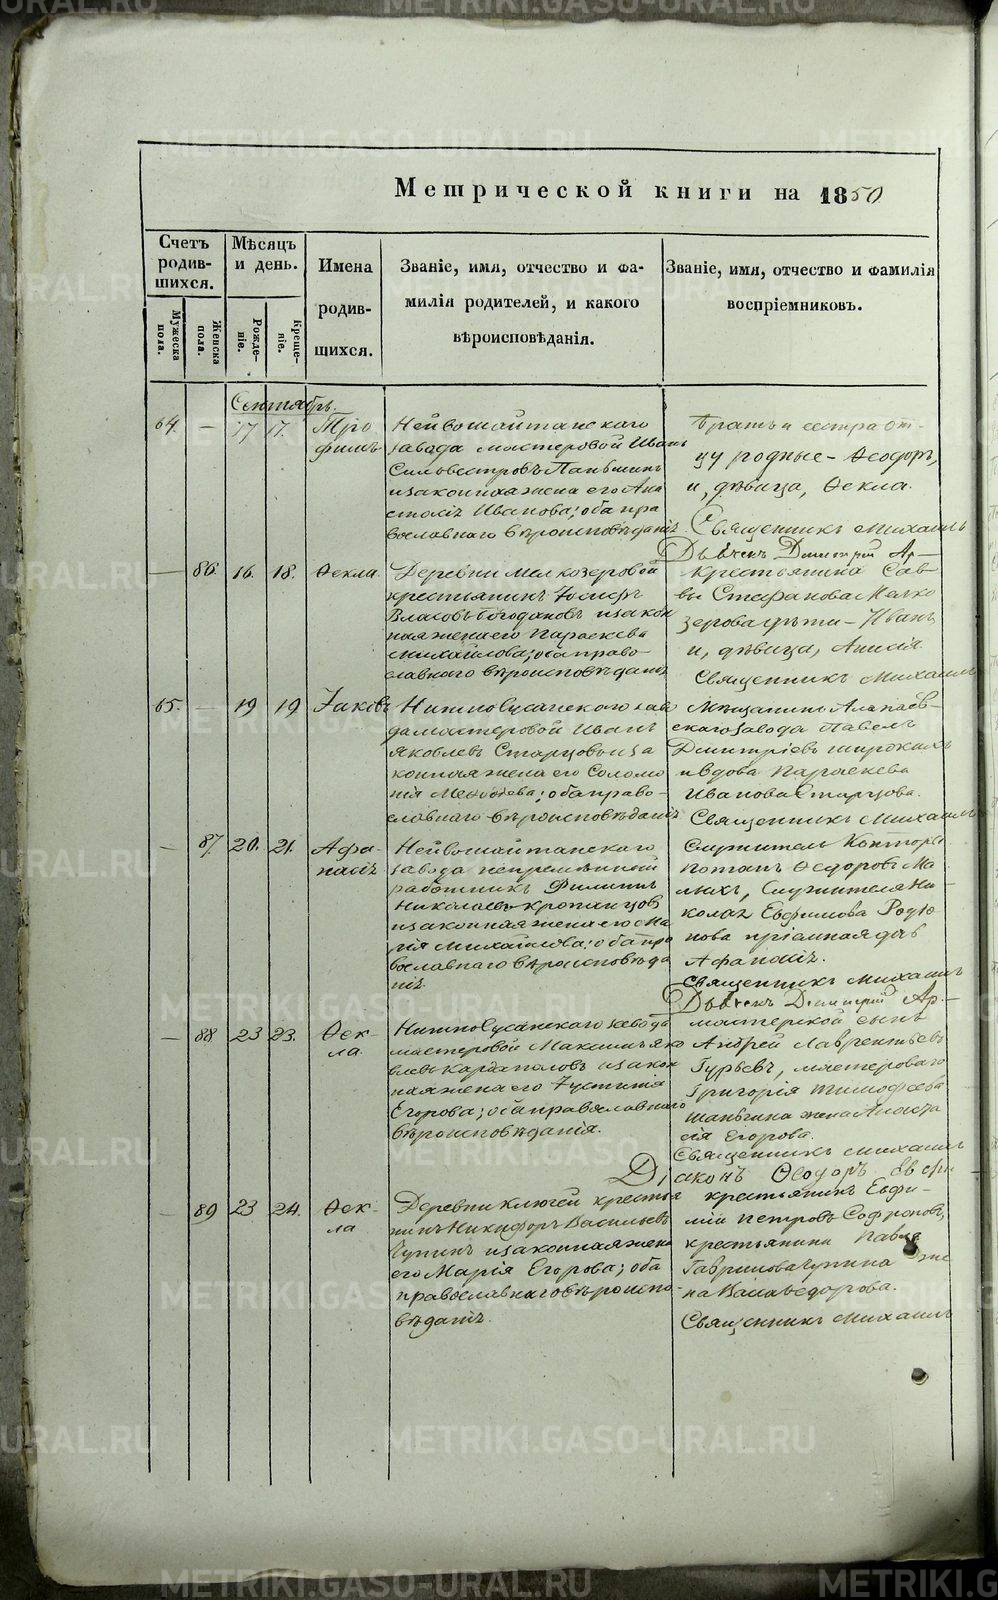 Метрической книги на 1850
Счетъ родив-шихся.
Мѣсяцъ и день.
Имена родив-щихся.
Званіе, имя, отчество и фа-
милія родителей, и какого
вѣроисповѣданія.
Званіе, имя, отчество и фамилія
воспріемниковъ.
Мужеска пола.
Женска пола.
Рожде-ніе.
Креще-ніе.
Сентябрь.
64. — 17 17. Тро
фимъ
Нейвошайтанскаго
завода мастеровой Иванъ
Сильвестровъ Паньшинъ
и законная жена его Ана
столія Иванова; оба пра
вославнаго вѣроисповѣданія
Братъ и сестра от-
цу родные - Ѳеодоръ,
и, дѣвица, Ѳекла.
Священникъ Михаилъ
Дьячекъ Димитрій Ар-
— 86. 16. 18. Ѳекла.
Деревни Мелкозеровой
крестьянинъ Іосифъ
Власовъ Богдановъ и закон
ная жена его Параскева
Михайлова; оба право-
славнаго вѣроисповѣданія
Крестьянина Сав-
вы Стефанова Мелко
зерова дѣти - Иванъ
и, дѣвица, Анисія.
Священникъ Михаилъ
65. — 19 19 Іаковъ
Нижносусанскаго заво
да мастеровой Иванъ
Яковлевъ Старцовъ и за
конная жена его Соломо
нія; оба право-
славнаго вѣроисповѣданія
Мѣщанинъ Алапаев-
скаго завода Павелъ
Дмитріевъ Широкихъ
и вдова Параскева
Иванова Старцова.
Священникъ Михаилъ
— 87. 20. 21. Афа-
насія
Нейвошайтанскаго
завода непремѣнный
работникъ Филиппъ
Николаевъ
и законная жена его Ма
рія Михайлова; оба пра
вославнаго вѣроисповѣда
нія.
Служитель Конторы
Потапъ Ѳедоровъ Ма-
лыхъ, Служителя Ни-
колая Евфимова Родіо
нова пріемная дочь
Афанасія.
Священникъ Михаилъ
Дьячекъ Димитрій Ар-
— 88 23 23. Ѳек-
ла.
Нижносусанскаго завода
мастеровой Максимъ Яко
влевъ Караполовъ и закон
ная жена его Іустинія
Егорова; оба православнаго
вѣроисповѣданія.
мастерской сынъ
Андрей Лаврентьевъ
Гурьевъ, мастероваго
Григорія Тимофеева
Шаньгина жена Анаста
сія Егорова.
Священникъ Михаилъ
Діаконъ Ѳеодоръ
— 89 23 24. Ѳек-
ла
Деревни Ключей крестья
нинъ Никифоръ Васильевъ
Чупинъ и законная жена
его Марія Егорова; оба
православнаго вѣроиспо-
вѣданія.
крестьянинъ Евфи-
мій Петровъ Софроновъ,
крестьянина Павла
Гаврилова Чупина же
на Ѳедорова.
Священникъ Михаилъ
METRIKI.GASO-URAL.RU